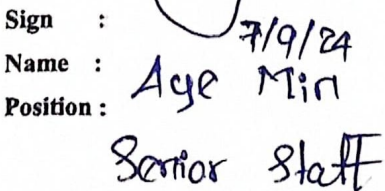 Sign :
7/9/24
Name : Aye Min
Position :
Senior Staff